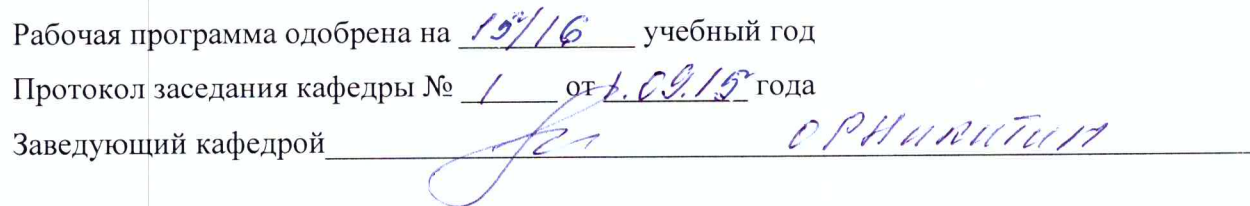 Рабочая программа одобрена на 15/16 учебный год
Протокол заседания кафедры № 1 от 1.09.15 года
Заведующий кафедрой О Р Никитин